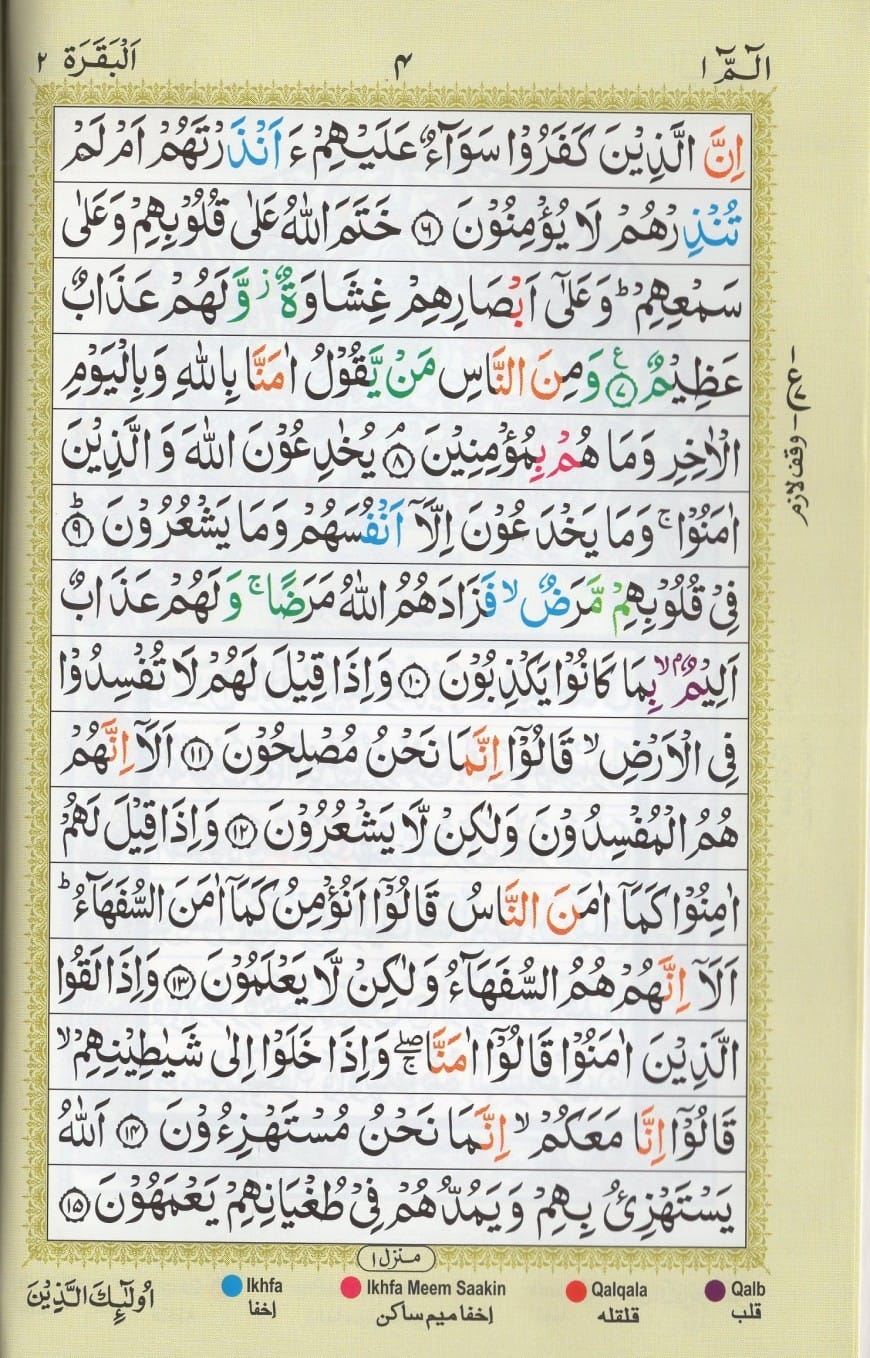 الٓمّٓ ١
۴
اَلْبَقَرَة ٢
اِنَّ الَّذِيْنَ كَفَرُوْا سَوَآءٌ عَلَيْهِمْ ءَاَنْذَرْتَهُمْ اَمْ لَمْ
تُنْذِرْهُمْ لَا يُؤْمِنُوْنَ ﴿۶﴾ خَتَمَ اللّٰهُ عَلٰى قُلُوْبِهِمْ وَعَلٰى
سَمْعِهِمْ ؕ وَعَلٰٓى اَبْصَارِهِمْ غِشَاوَةٌ ز وَّلَهُمْ عَذَابٌ
عَظِيْمٌ ﴿۷﴾ ع وَمِنَ النَّاسِ مَنْ يَّقُوْلُ اٰمَنَّا بِاللّٰهِ وَبِالْيَوْمِ
الْاٰخِرِ وَمَا هُمْ بِمُؤْمِنِيْنَ ﴿۸﴾ۘ يُخٰدِعُوْنَ اللّٰهَ وَالَّذِيْنَ
اٰمَنُوْا ۚ وَمَا يَخْدَعُوْنَ اِلَّآ اَنْفُسَهُمْ وَمَا يَشْعُرُوْنَ ﴿۹﴾ؕ
فِىْ قُلُوْبِهِمْ مَّرَضٌ ۙ فَزَادَهُمُ اللّٰهُ مَرَضًا ۚ وَلَهُمْ عَذَابٌ
اَلِيْمٌۢ ۙ بِمَا كَانُوْا يَكْذِبُوْنَ ﴿۱۰﴾ وَاِذَا قِيْلَ لَهُمْ لَا تُفْسِدُوْا
فِى الْاَرْضِ ۙ قَالُوْٓا اِنَّمَا نَحْنُ مُصْلِحُوْنَ ﴿۱۱﴾ اَلَآ اِنَّهُمْ
هُمُ الْمُفْسِدُوْنَ وَلٰكِنْ لَّا يَشْعُرُوْنَ ﴿۱۲﴾ وَاِذَا قِيْلَ لَهُمْ
اٰمِنُوْا كَمَآ اٰمَنَ النَّاسُ قَالُوْٓا اَنُؤْمِنُ كَمَآ اٰمَنَ السُّفَهَآءُ ؕ
اَلَآ اِنَّهُمْ هُمُ السُّفَهَآءُ وَلٰكِنْ لَّا يَعْلَمُوْنَ ﴿۱۳﴾ وَاِذَا لَقُوا
الَّذِيْنَ اٰمَنُوْا قَالُوْٓا اٰمَنَّا ۖۚ وَاِذَا خَلَوْا اِلٰى شَيٰطِيْنِهِمْ ۙ
قَالُوْٓا اِنَّا مَعَكُمْ ۙ اِنَّمَا نَحْنُ مُسْتَهْزِءُوْنَ ﴿۱۴﴾ اَللّٰهُ
يَسْتَهْزِئُ بِهِمْ وَيَمُدُّهُمْ فِىْ طُغْيَانِهِمْ يَعْمَهُوْنَ ﴿۱۵﴾
وقف لازم
منزل ١
Qalb قلب
Qalqala قلقله
Ikhfa Meem Saakin إخفا ميم ساكن
Ikhfa إخفا
اُولٰٓئِكَ الَّذِيْنَ